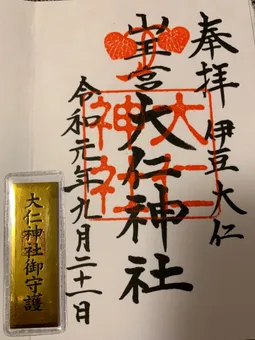 奉拝
伊豆大仁
山王宮
大仁神社
大仁神社
令和元年九月二十一日
大仁神社御守護